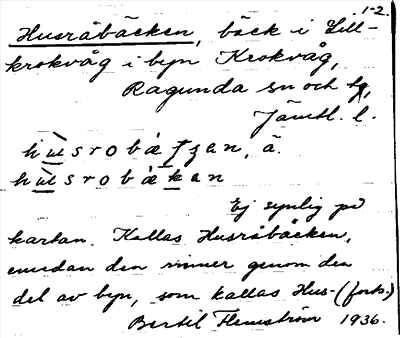 1-2.
Husråbäcken, bäck i Lill-
krokvåg i byn Krokvåg,
Ragunda sn och tg,
Jämtl. l.
Ej synlig på
kartan. Kallas Husråbäcken,
emedan den rinner genom den
del av byn, som kallas Hus- (forts.)
Bertil Flemström 1936.